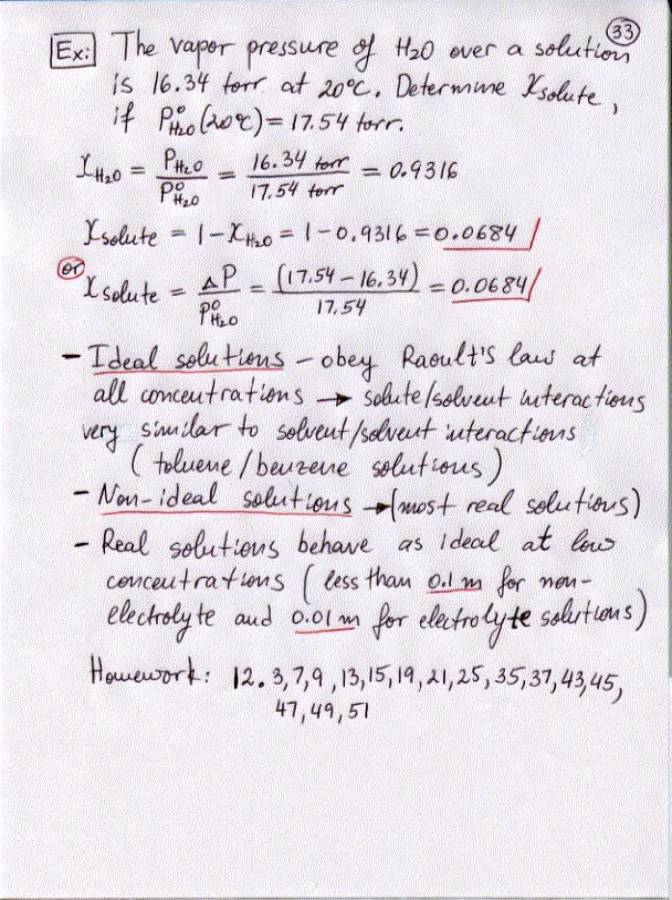 33
Ex: The vapor pressure of H₂O over a solution
is 16.34 torr at 20°C. Determine Xsolute,
if P°H₂O (20°C) = 17.54 torr.
XH₂O = PH₂O / P°H₂O = 16.34 torr / 17.54 torr = 0.9316
Xsolute = 1 - XH₂O = 1 - 0.9316 = 0.0684
or Xsolute = ΔP / P°H₂O = (17.54 - 16.34) / 17.54 = 0.0684
- Ideal solutions - obey Raoult's law at
all concentrations → solute/solvent interactions
very similar to solvent/solvent interactions
(toluene/benzene solutions)
- Non-ideal solutions → (most real solutions)
- Real solutions behave as ideal at low
concentrations (less than 0.1 m for non-
electrolyte and 0.01 m for electrolyte solutions)
Homework: 12. 3, 7, 9, 13, 15, 19, 21, 25, 35, 37, 43, 45,
47, 49, 51